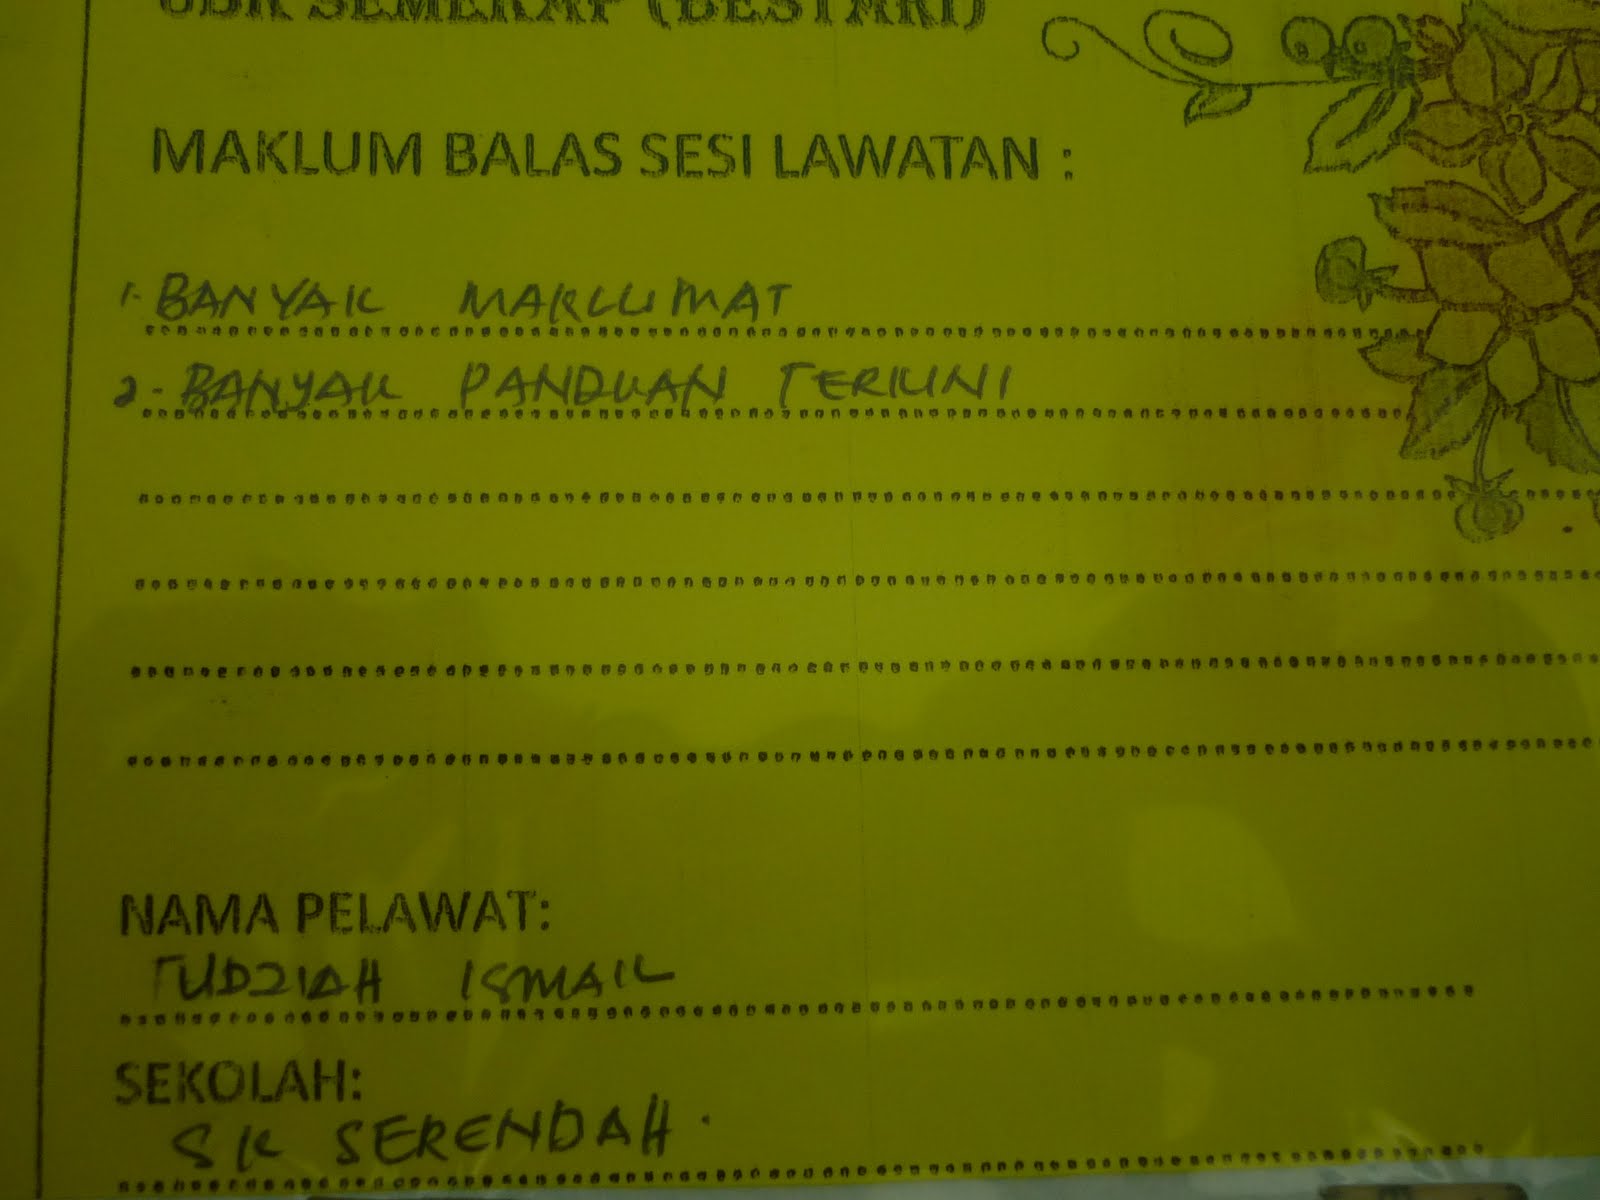 UBK SEMEKAP (BESTARI)
MAKLUM BALAS SESI LAWATAN :
1. BANYAK MAKLUMAT
2- BANYAK PANDUAN TERKINI
NAMA PELAWAT:
TUDZIAH ISMAIL
SEKOLAH:
SK SERENDAH.